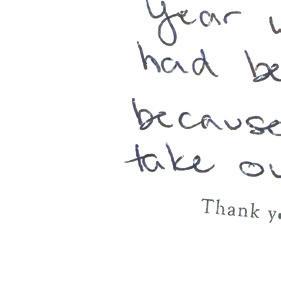 year
had be
because
take ou
Thank yo